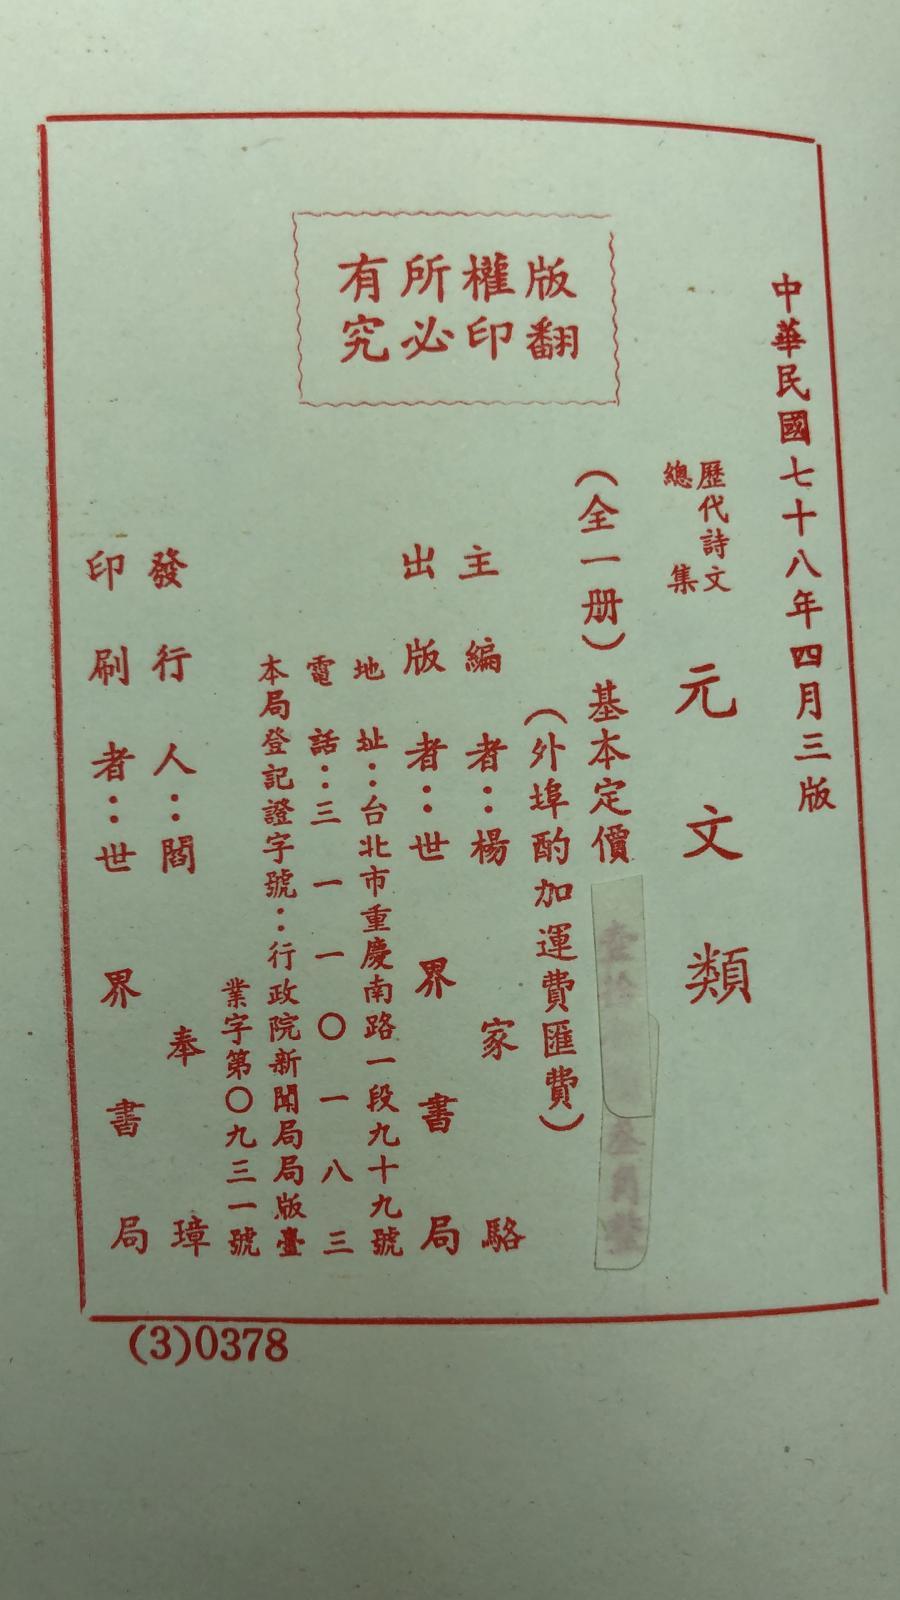 中華民國七十八年四月三版
歷代詩文
總集
元文類
(全一册)基本定價
(外埠酌加運費匯費)
版權所有
翻印必究
主編者：楊家駱
出版者：世界書局
地址：台北市重慶南路一段九十九號
電話：三一一〇一八三
本局登記證字號：行政院新聞局局版臺
業字第〇九三一號
發行人：閻奉璋
印刷者：世界書局
(3)0378